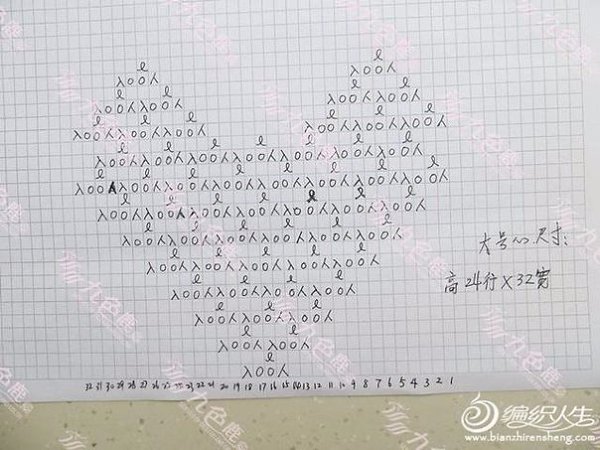 大号心尺寸:
高24行×32宽
32 31 30 29 28 27 26 25 24 23 22 21 20 19 18 17 16 15 14 13 12 11 10 9 8 7 6 5 4 3 2 1
九色鹿
编织人生
www.bianzhirensheng.com